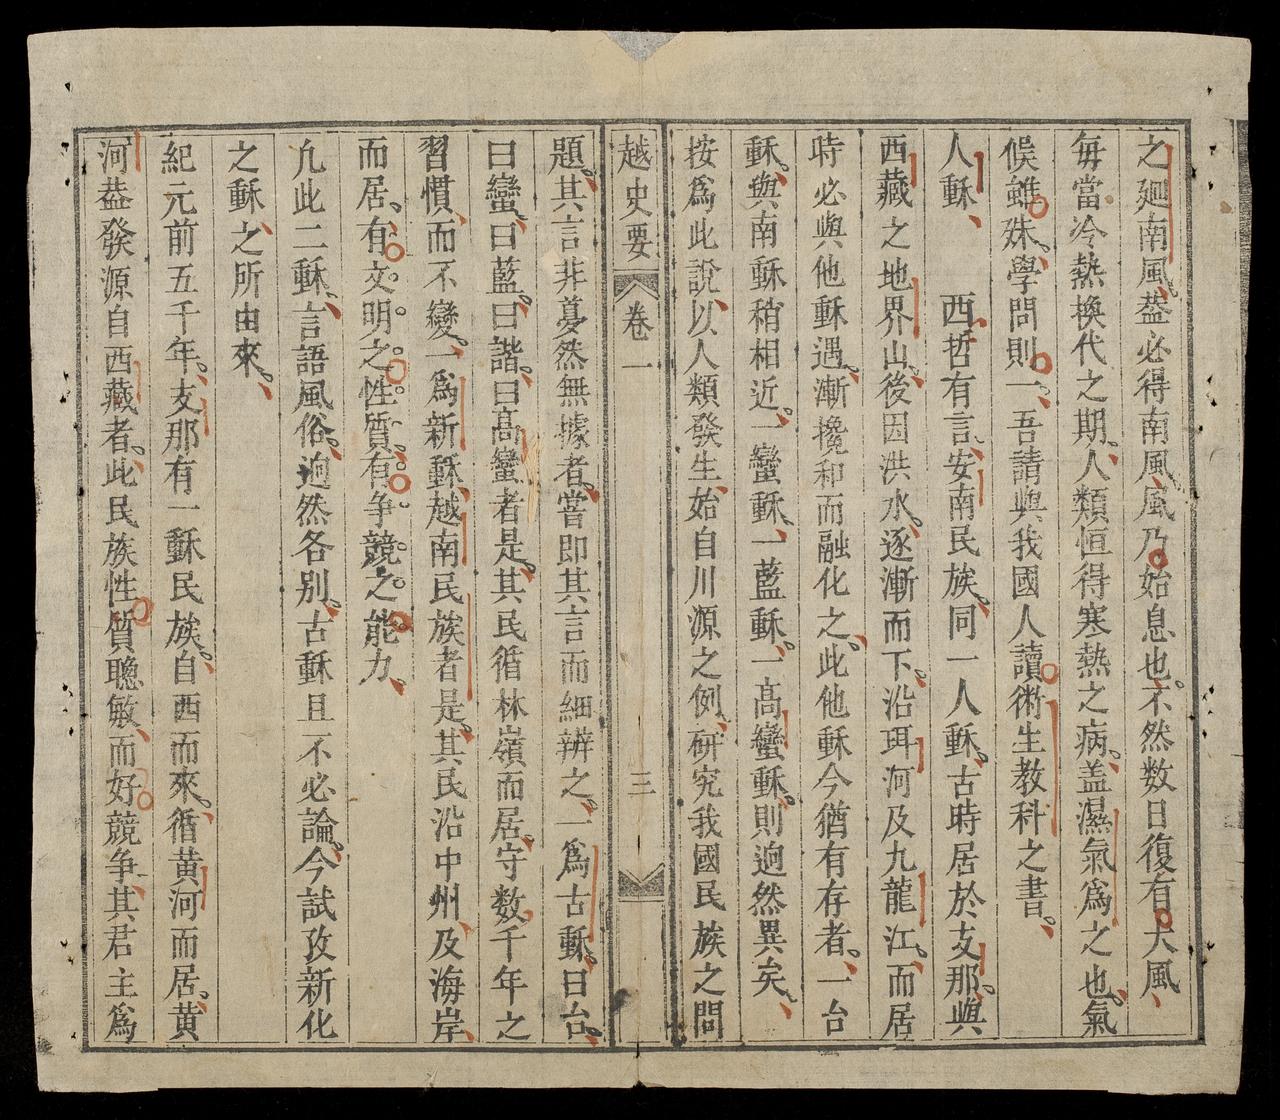 之廻南風、葢必得南風、風乃始息也、不然数日復有大風、
每當冷熱換代之期、人類恒得寒熱之病、盖濕氣爲之也、氣
候雖殊、學問則一、吾請與我國人讀術生教科之書、
人穌、　西哲有言、安南民族、同一人穌、古時居於支那、與
西藏之地界山、後因洪水、逐漸而下、沿珥河及九龍江、而居
時必與他穌遇、漸攙和而融化之、此他穌今猶有存者、一台
穌、與南穌稍相近、一蠻穌、一藍穌、一髙蠻穌、則逈然異矣、
按爲此說、以人類發生、始自川源之例、研究我國民族之問
越史要 卷一 三
題、其言非戞然無據者、嘗即其言而細辨之、一爲古穌、曰台、
曰蠻、曰藍、曰諧、曰髙蠻者是、其民循林嶺而居、守数千年之
習慣、而不變、一爲新穌、越南民族者是、其民沿中州、及海岸、
而居、有文明之性質、有争競之能力、
凢此二穌、言語風俗、逈然各别、古穌且不必論、今試攷新化
之穌、之所由來、
紀元前五千年、支那有一穌民族、自西而來、循黄河而居、黄
河葢發源自西藏者、此民族性質聰敏、而好競争、其君主爲